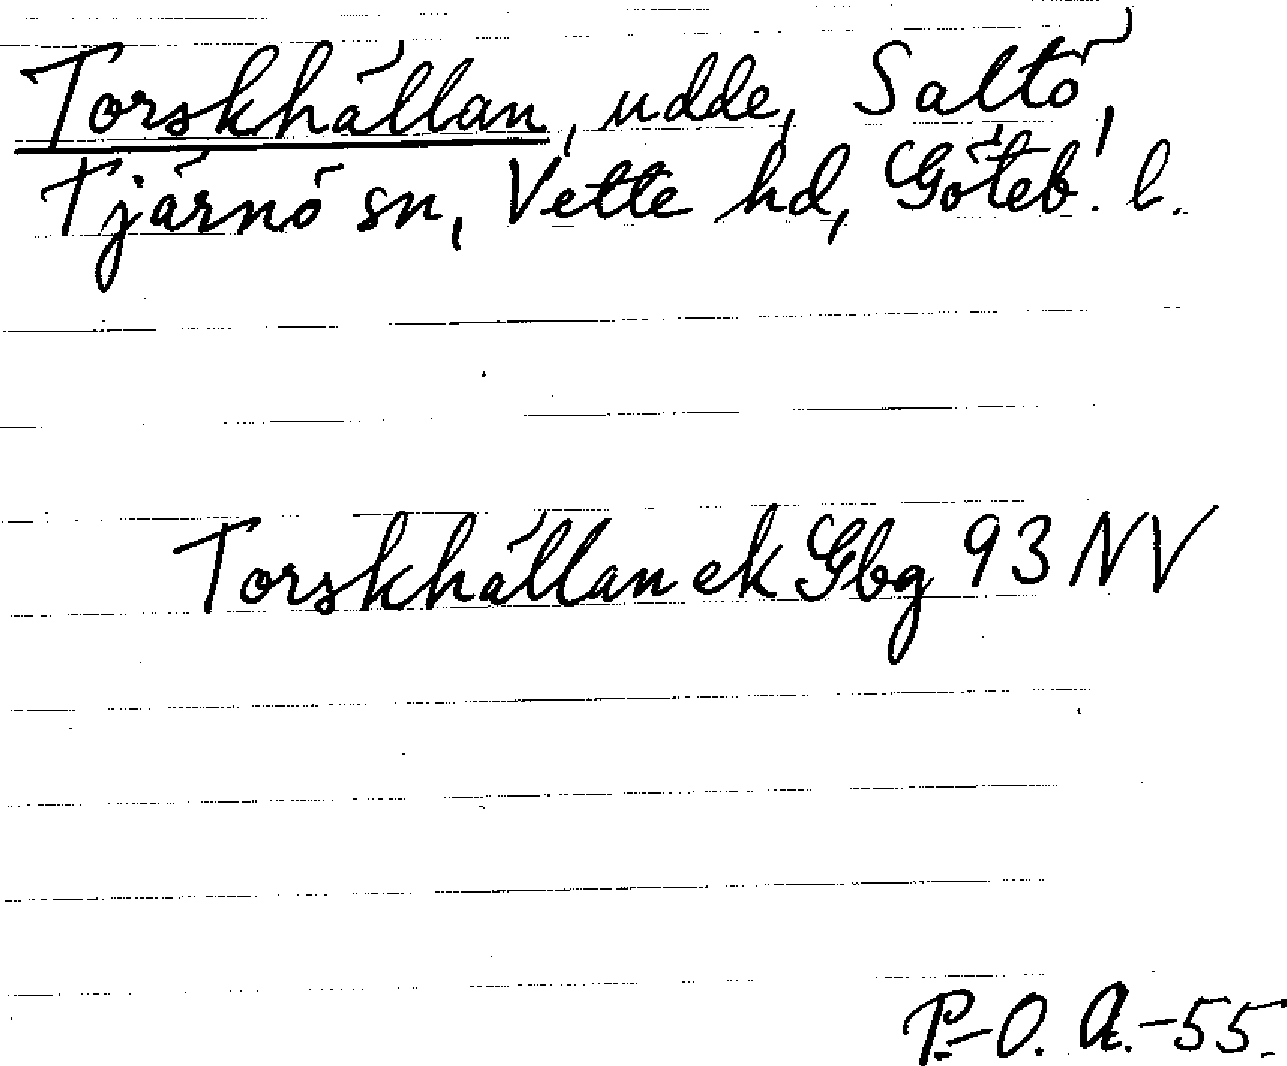 Torskhällan, udde, Saltö,
Tjärnö sn, Vette hd, Göteb. l.
Torskhällan ek Gbg 93 NV
P.-O. A. -55.